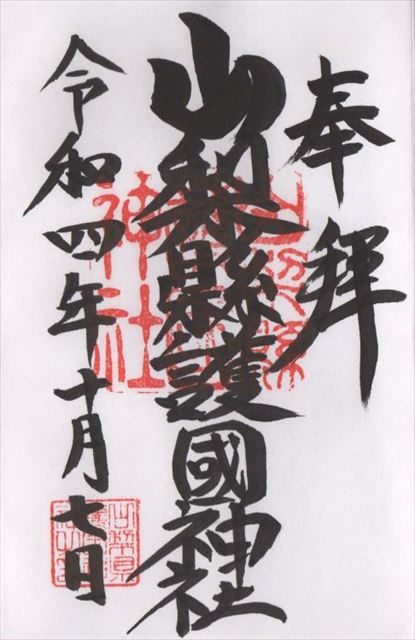 奉拝
山梨縣護國神社
令和四年十月七日